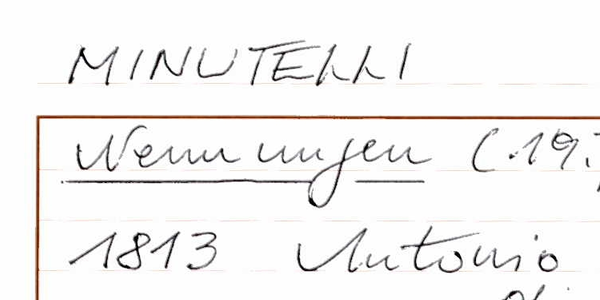 MINUTELLI
Nennungen (19.
1813 Antonio